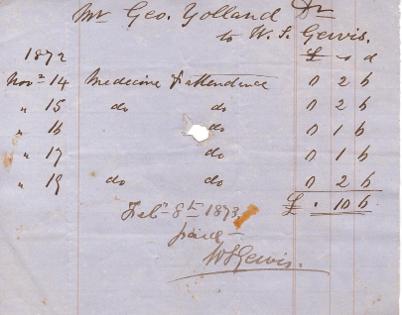 Mr Geo. Yolland Dr
to W. S. Gervis.
1872 £ s d
Novr 14 Medecine & attendence 0 2 6
" 15 do do 0 2 6
" 16 do 0 1 6
" 17 do 0 1 6
" 19 do do 0 2 6
£ . 10 6
Feby 8th 1873
paid
WSGervis.